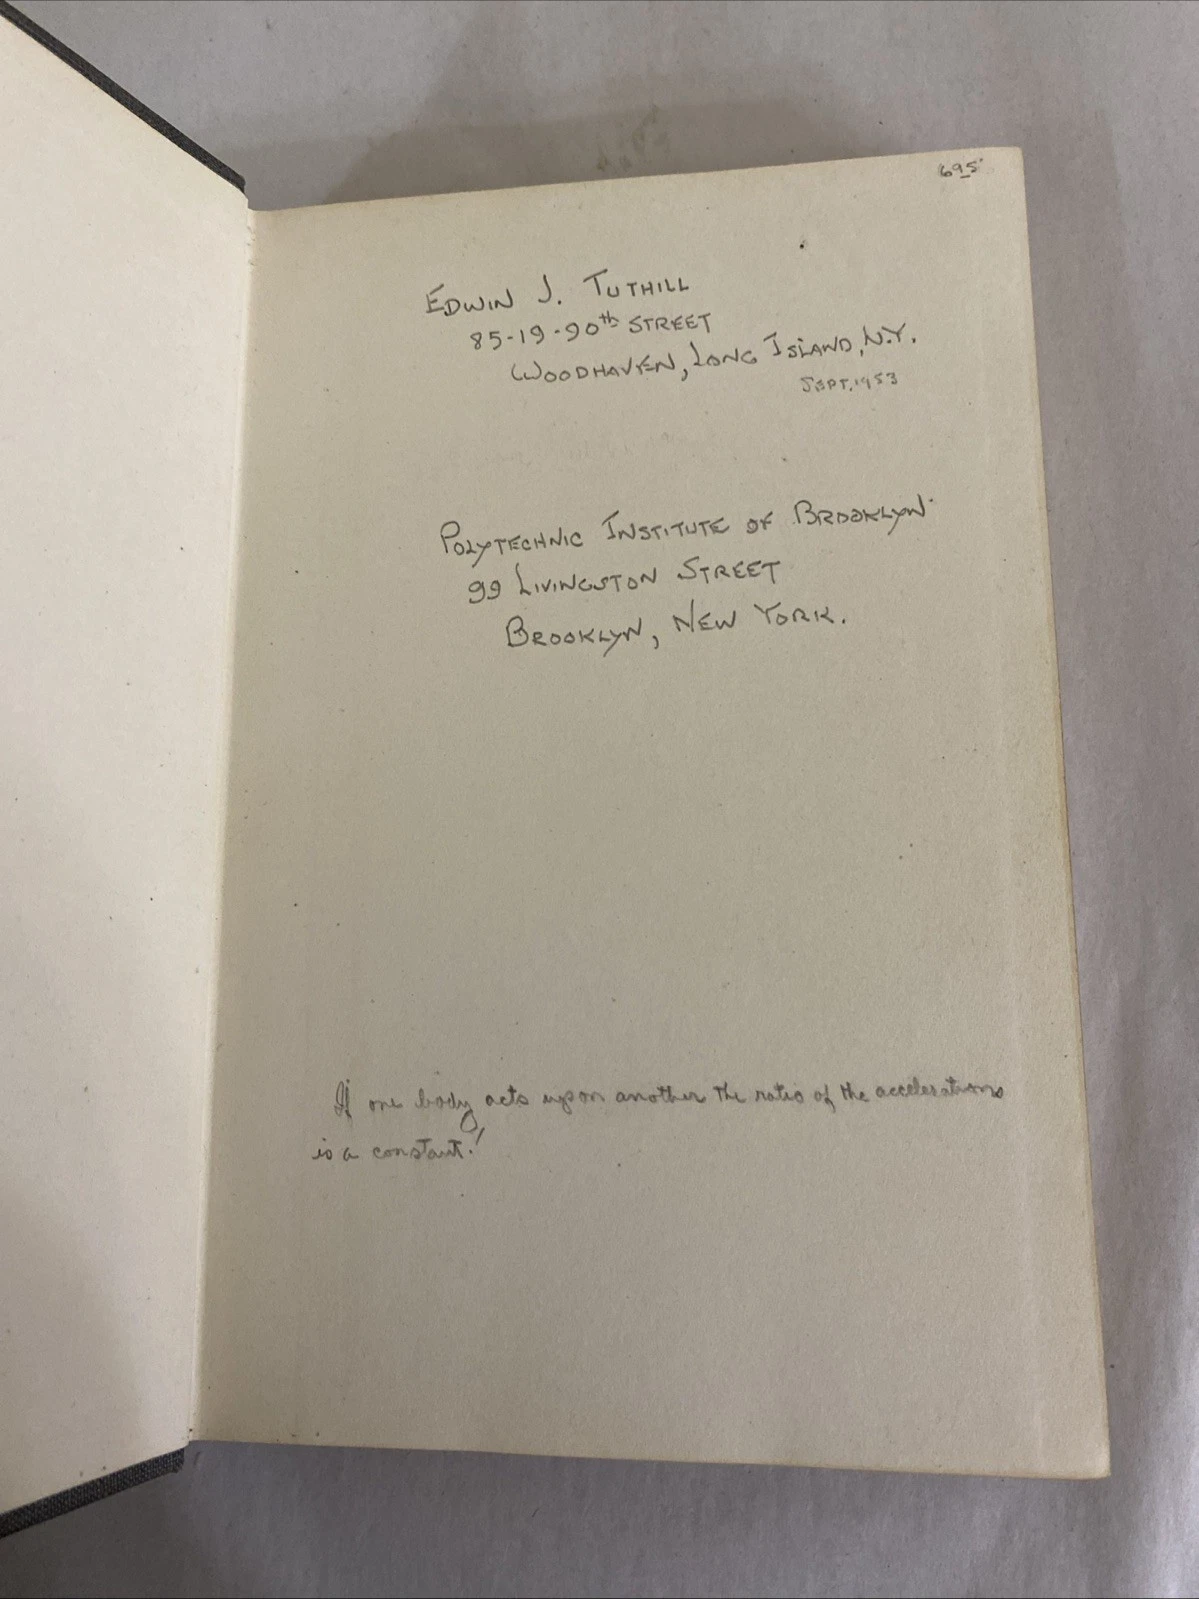 695
EDWIN J. TUTHILL
85-19-90th STREET
WOODHAVEN, LONG ISLAND, N.Y.
SEPT. 1953
POLYTECHNIC INSTITUTE OF BROOKLYN
99 LIVINGSTON STREET
BROOKLYN, NEW YORK.
If one body acts upon another the ratio of the accelerations
is a constant!